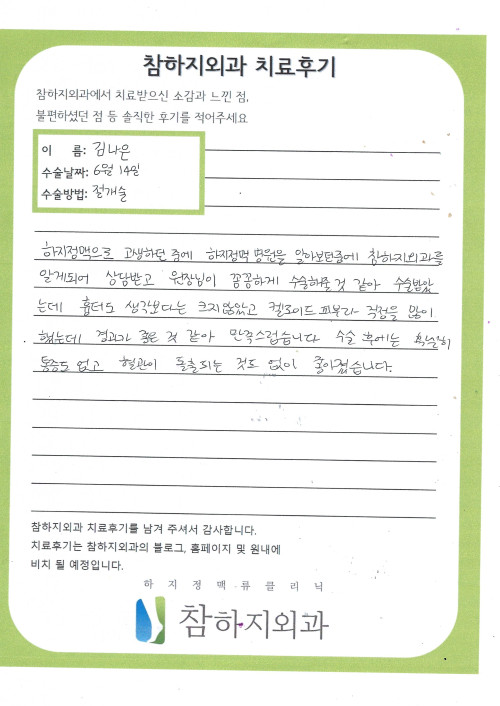 참하지외과 치료후기
참하지외과에서 치료받으신 소감과 느낀 점,
불편하셨던 점 등 솔직한 후기를 적어주세요
이 름: 김나은
수술날짜: 6월 14일
수술방법: 절개술
하지정맥으로 고생하던 중에 하지정맥 병원을 알아보던중에 참하지외과를
알게되어 상담받고 원장님이 꼼꼼하게 수술해줄것 같아 수술받았
는데 흉터도 생각보다는 크지않았고 켈로이드 피부라 걱정을 많이
했는데 결과가 좋은 것 같아 만족스럽습니다 수술 후에는 확실히
통증도 없고 혈관이 돌출되는 것도 없이 좋아졌습니다.
참하지외과 치료후기를 남겨 주셔서 감사합니다.
치료후기는 참하지외과의 블로그, 홈페이지 및 원내에
비치 될 예정입니다.
하지정맥류클리닉
참하지외과